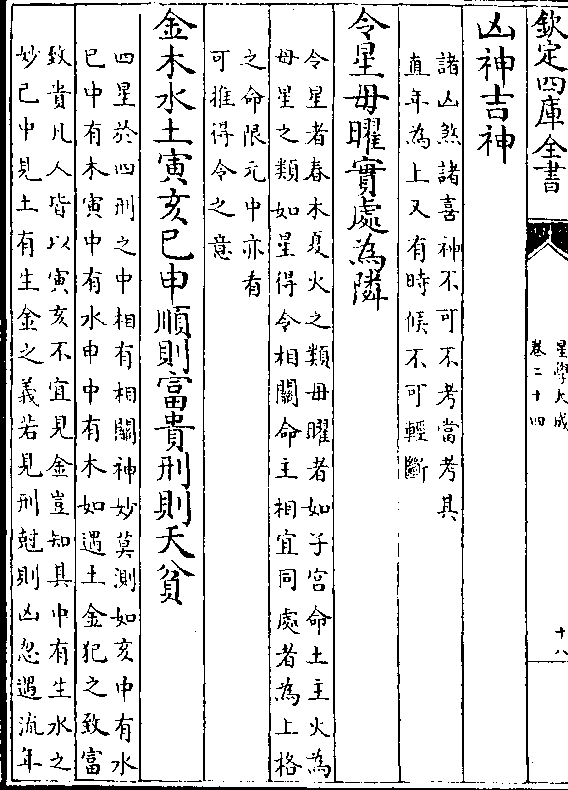 欽定四庫全書
星學大成
卷二十四
十八
凶神吉神
諸凶煞諸喜神不可不考當考其
直年為上又有時候不可輕斷
令星母曜實處為隣
令星者春木夏火之類母曜者如子宮命土主火為
母星之類如星得令相關命主相宜同處者為上格
之命限元中亦有
可推得令之意
金木水土寅亥巳申順則富貴刑則夭貧
四星於四刑之中相有相關神妙莫測如亥中有水
巳中有木寅中有水申中有木如遇土金犯之致富
致貴凡人皆以寅亥不宜見金豈知其中有生水之
妙巳中見土有生金之義若見刑尅則凶忽遇流年